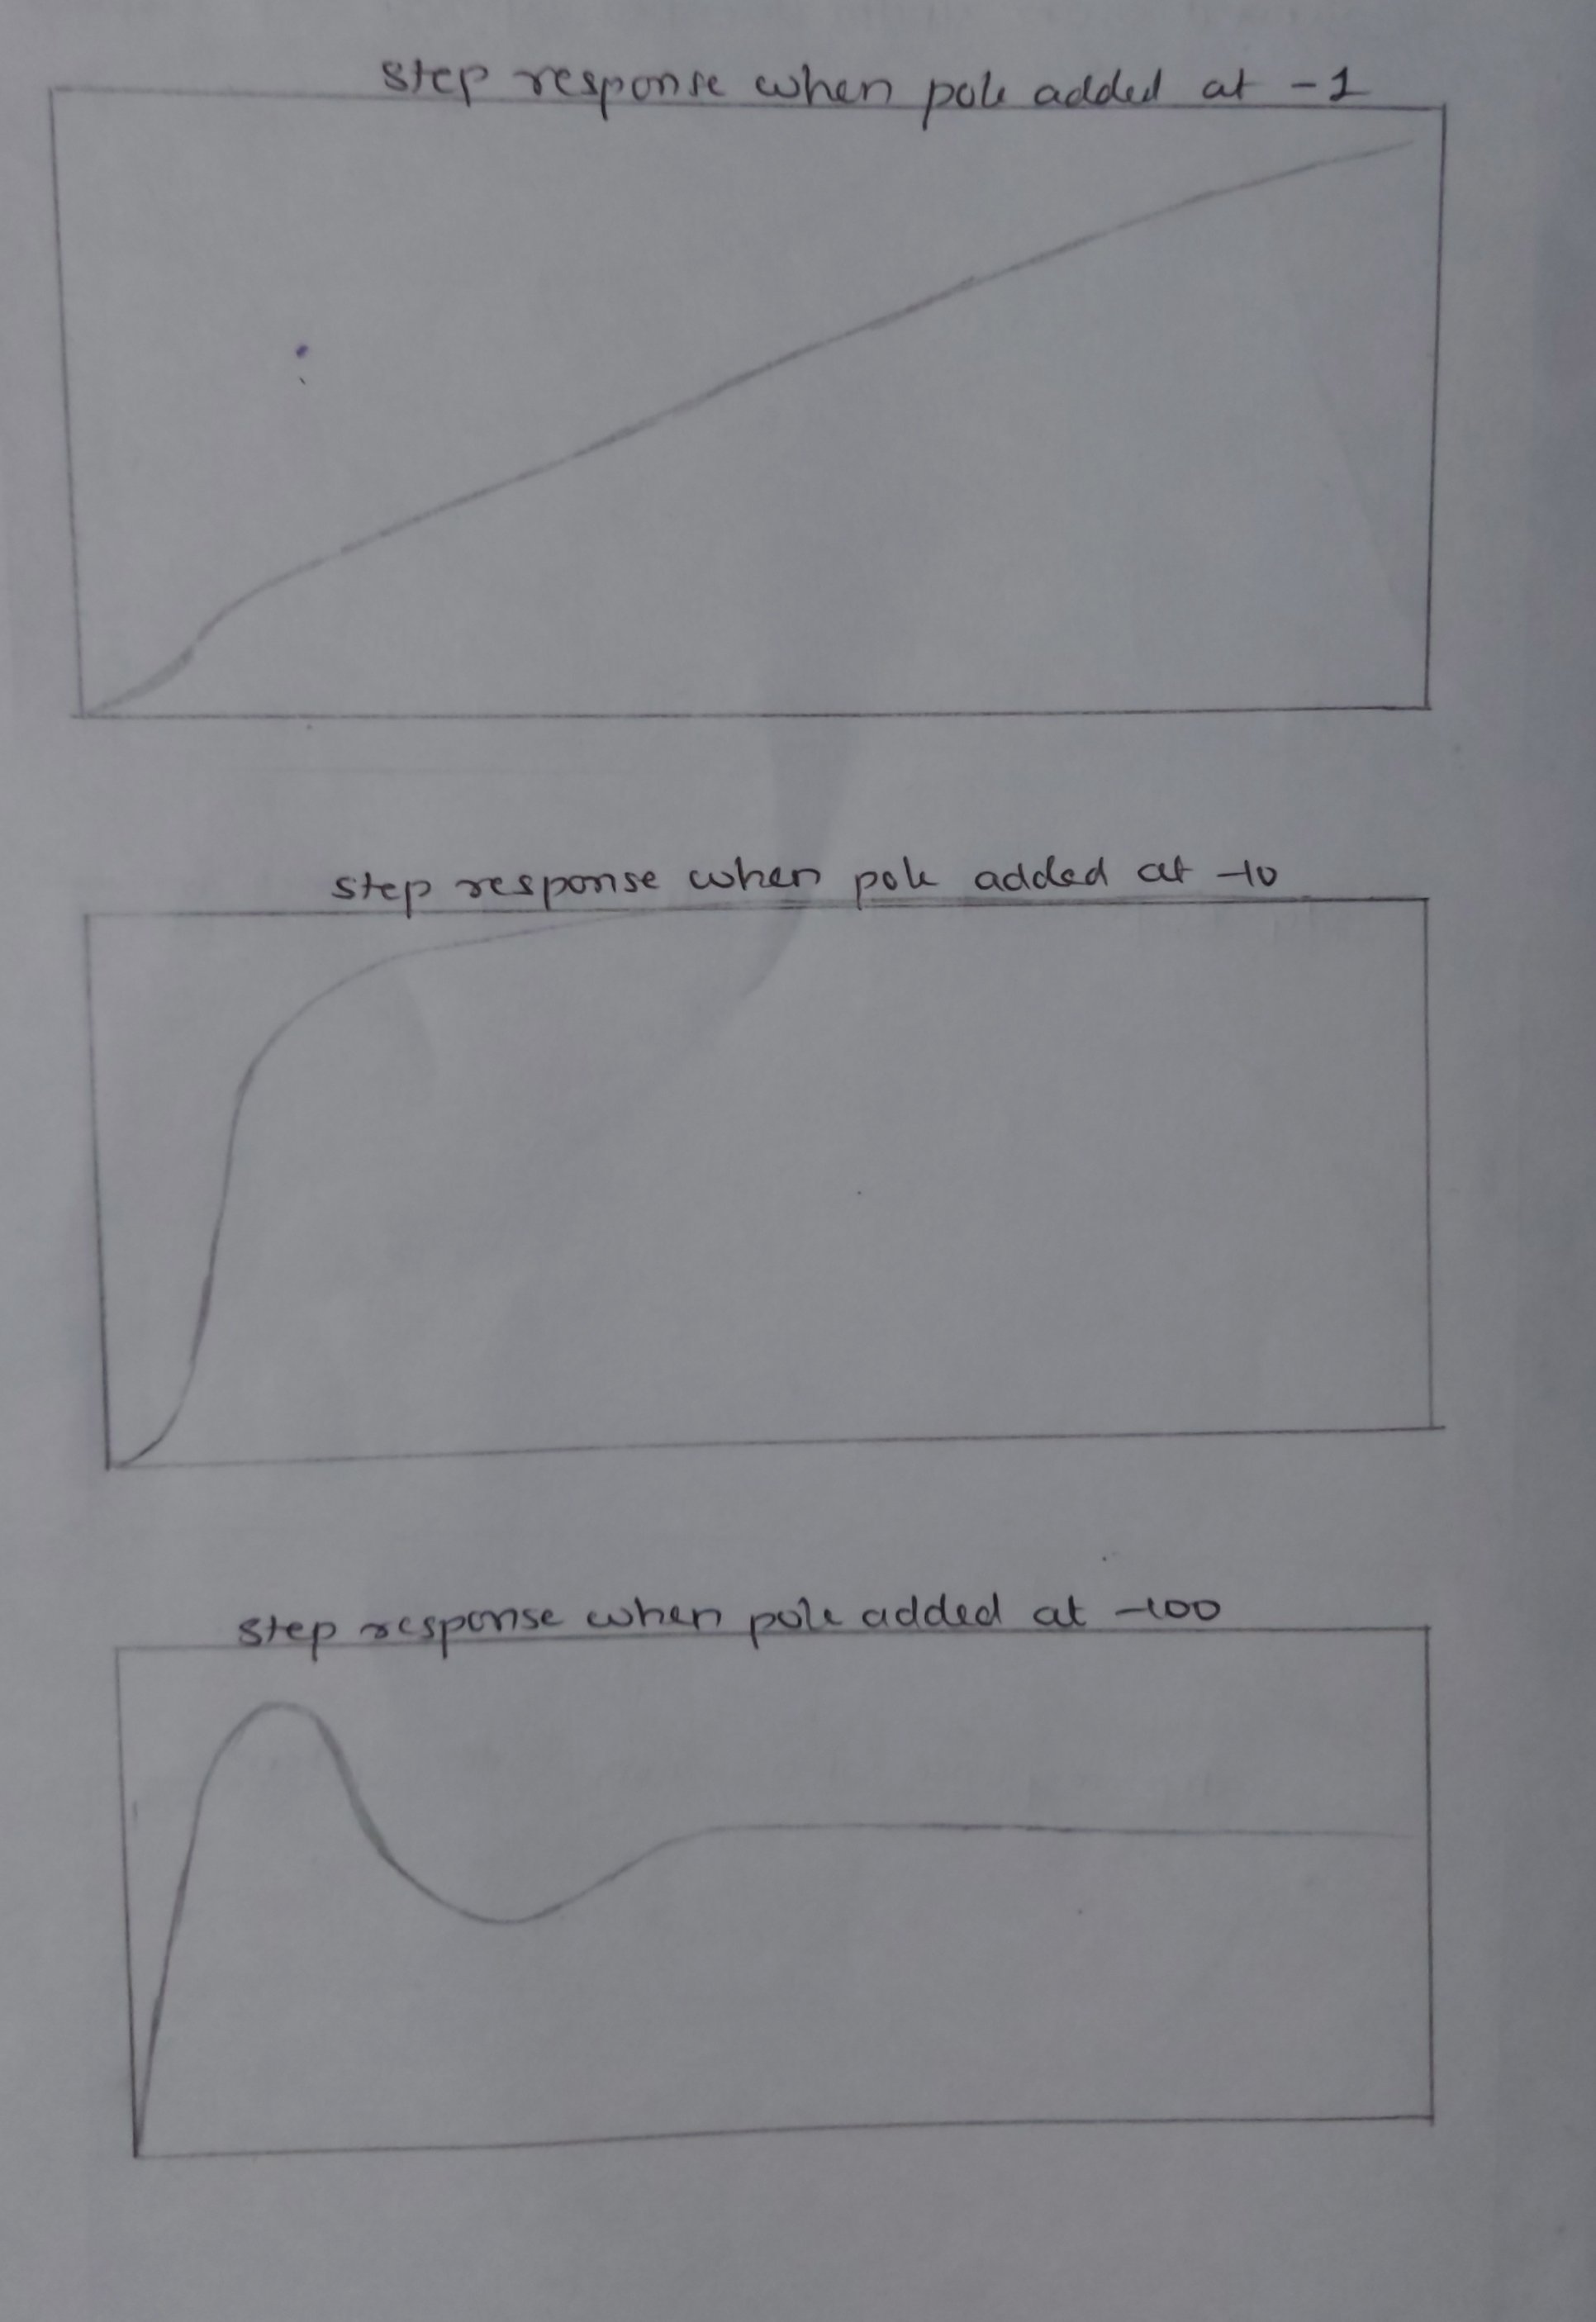 step response when pole added at -1
step response when pole added at -10
step response when pole added at -100